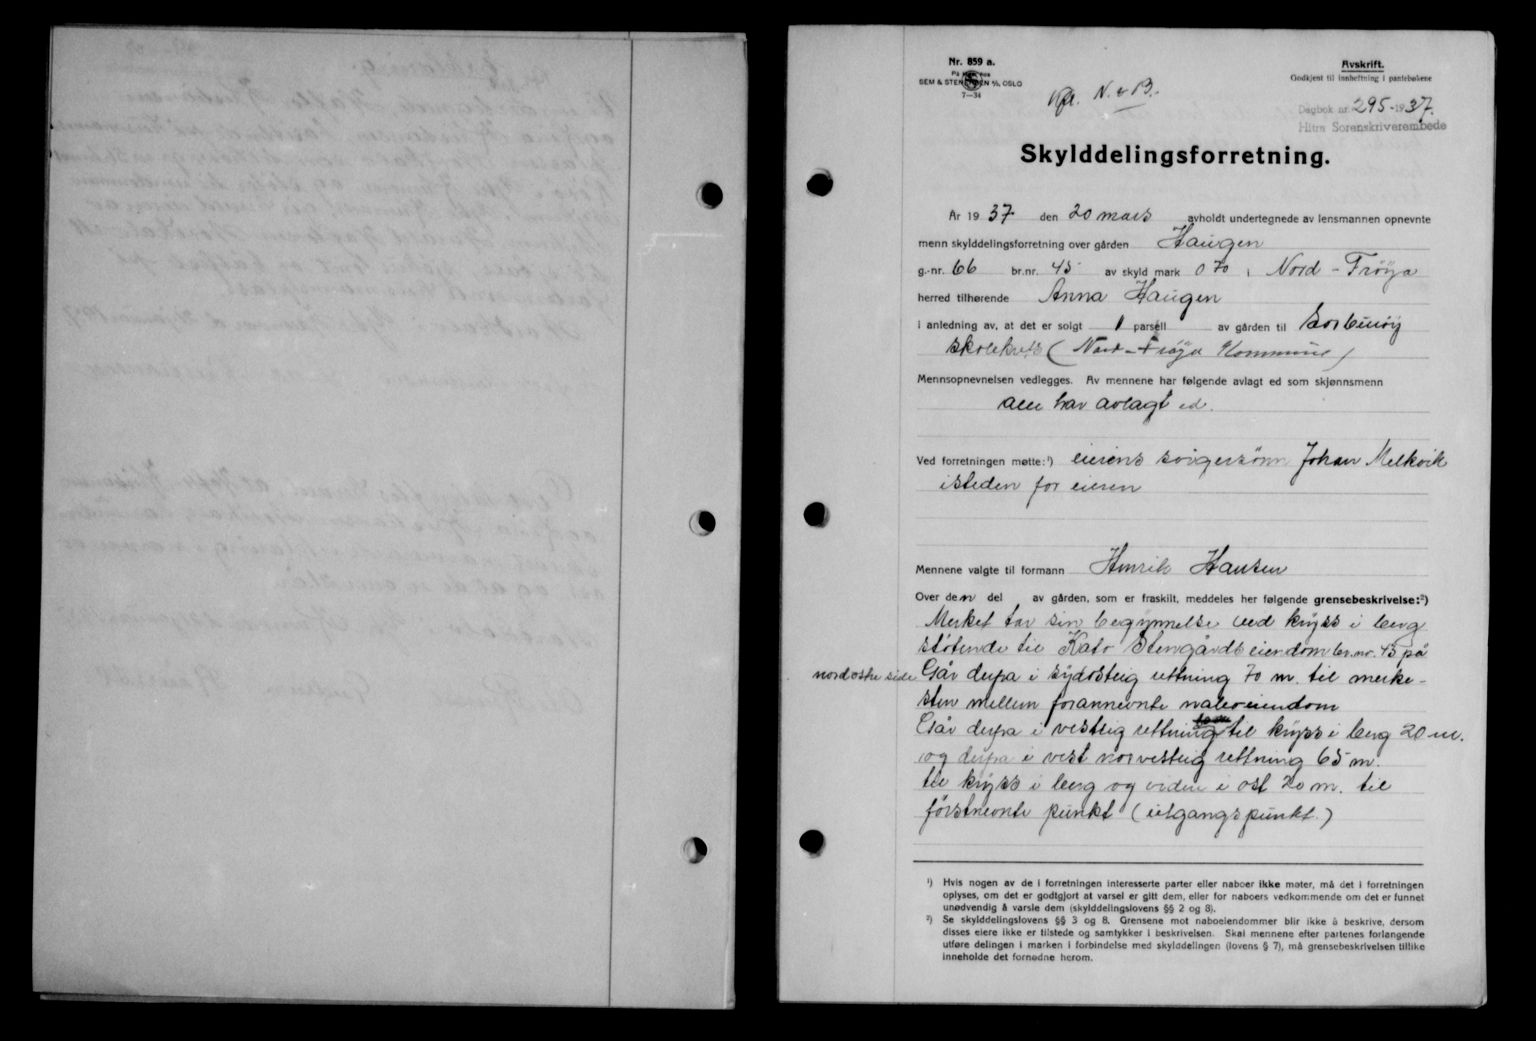 Nr. 859 a.
På lager hos
SEM & STENERSEN A/S, OSLO
7—34
Avskrift.
Godkjent til innheftning i pantebøkene
N. & B.
Dagbok nr. 295-1937.
Hitra Sorenskriverembede
Skylddelingsforretning.
År 1937 den 20 mars avholdt undertegnede av lensmannen opnevnte
menn skylddelingsforretning over gården Haugen
g.-nr. 66 br.nr. 45 av skyld mark 0 70 i Nord - Fröya
herred tilhørende Anna Haugen
i anledning av, at det er solgt 1 parsell av gården til
skolekrets (Nord - Fröya Kommune)
Mennsopnevnelsen vedlegges. Av mennene har følgende avlagt ed som skjønnsmenn
alle har avlagt ed.
Ved forretningen møtte:¹) eierens svigersönn Johan Melkvik
isteden for eieren
Mennene valgte til formann Henrik Hansen
Over den del av gården, som er fraskilt, meddeles her følgende grensebeskrivelse:²)
Merket tar sin begynnelse ved kryss i berg
støtende til Kato Stengårds eiendom br.nr. 45 på
nordøstre side Går derfra i sydöstlig rettning 70 m. til merke-
sten mellem forannevnte naboeiendom
Går derfra i vestlig rettning til kryss i berg 20 m.
og derfra i vest norvestlig rettning 65 m.
til kryss i berg og videre i ost 20 m. til
förstnevnte punkt (utgangspunkt.)
¹) Hvis nogen av de i forretningen interesserte parter eller naboer ikke møter, må det i forretningen
oplyses, om det er godtgjort at varsel er gitt dem, eller for naboers vedkommende om det er funnet
unødvendig å varsle dem (skylddelingslovens §§ 2 og 8).
²) Se skylddelingslovens §§ 3 og 8. Grensene mot naboeiendommer blir ikke å beskrive, dersom
disses eiere ikke er tilstede og samtykker i beskrivelsen. Skal mennene efter partenes forlangende
utføre delingen i marken i forbindelse med skylddelingen (lovens § 7), må grensebeskrivelsen tillike
inneholde det fornødne herom.